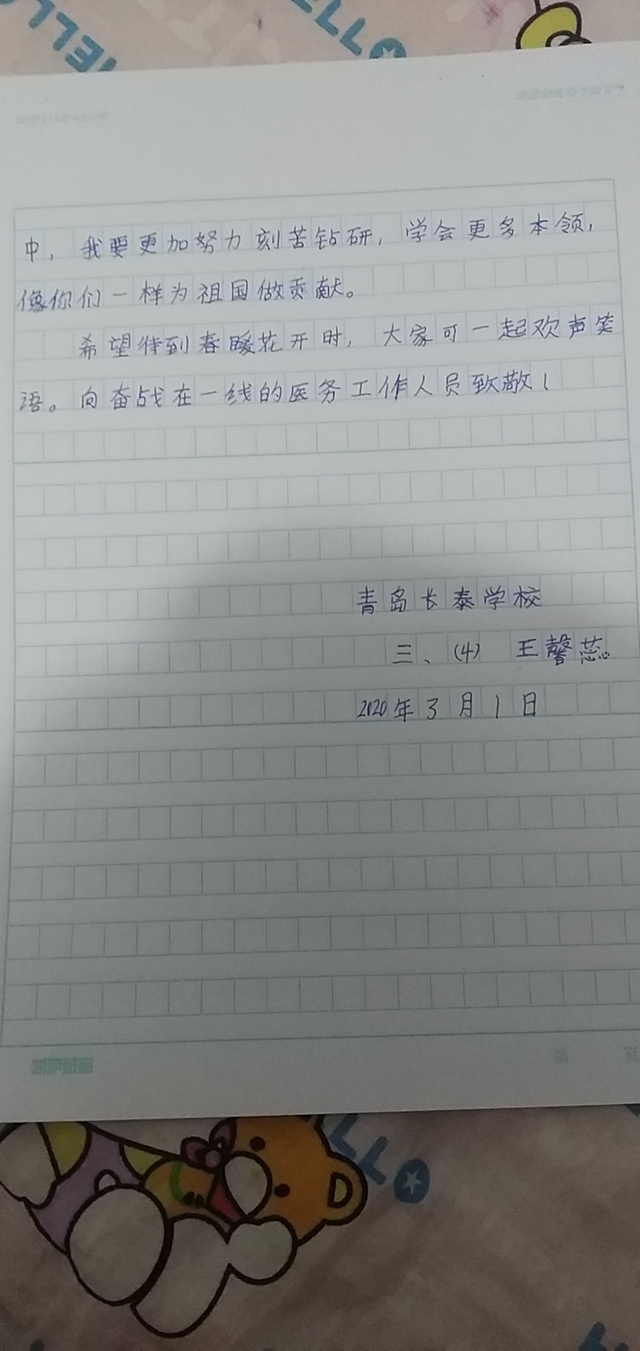 HELLO
中，我要更加努力刻苦钻研，学会更多本领，
像你们一样为祖国做贡献。
希望待到春暖花开时，大家可一起欢声笑
语。向奋战在一线的医务工作人员致敬！
青岛长泰学校
三、(4) 王馨蕊
2020年3月1日